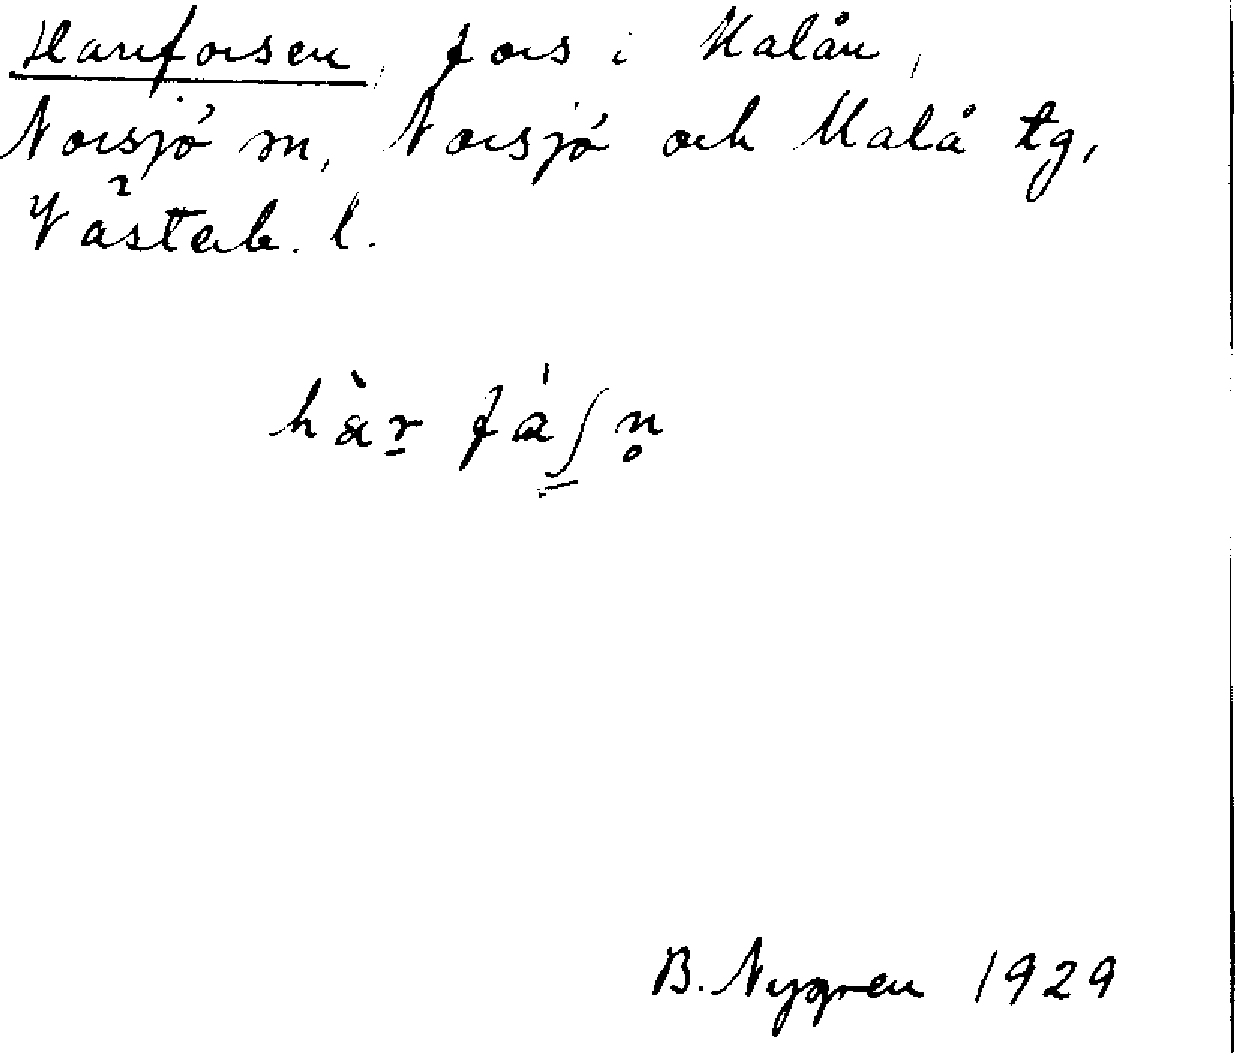 Harrforsen, fors i Malån,
Norsjö m, Norsjö och Malå tg,
Västerb. l.
B. Nygren 1929